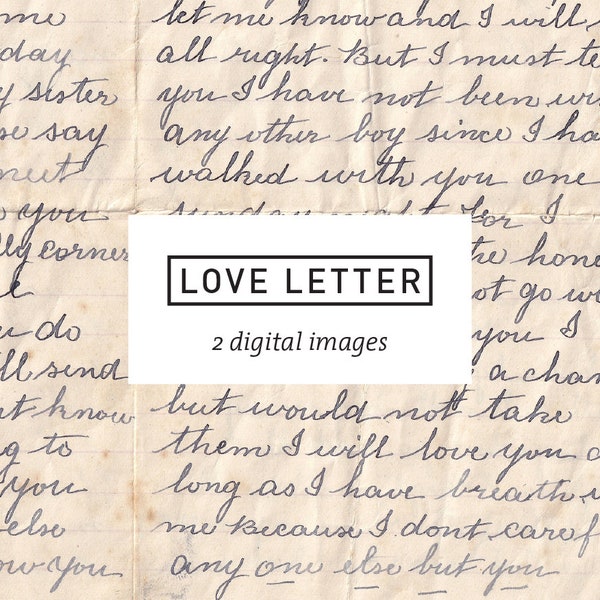 me
day
y sister
se say
meet
you
lly corner
e
u do
ll send
t know
g to
you
else
ow you
let me know and I will
all right. But I must te
you I have not been wi
any other boy since I ha
walked with you one
sunday night for I
the hone
ot go wi
you I
a chan
but would not take
them I will love you a
long as I have breath
me Because I dont care f
any one else but you
LOVE LETTER
2 digital images